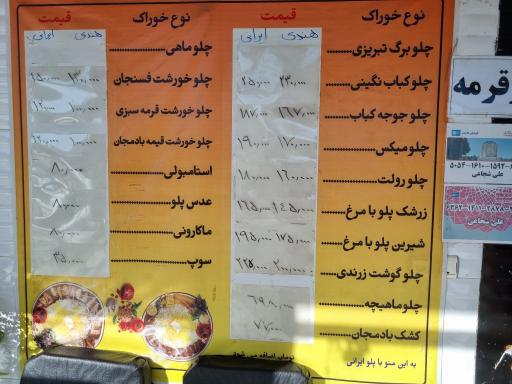 نوع خوراک قیمت
هندی ایرانی
چلو برگ تبریزی
چلو کباب نگینی ۲۳۰,۰۰۰ ۲۵۰,۰۰۰
چلو جوجه کباب ۱۶۷,۰۰۰ ۱۸۷,۰۰۰
چلو میکس ۱۷۰,۰۰۰ ۱۹۰,۰۰۰
چلو رولت ۱۶۰,۰۰۰ ۱۸۰,۰۰۰
زرشک پلو با مرغ ۱۴۵,۰۰۰ ۱۶۵,۰۰۰
شیرین پلو با مرغ ۱۷۵,۰۰۰ ۱۹۵,۰۰۰
چلو گوشت زرندی ۲۰۰,۰۰۰ ۲۲۵,۰۰۰
چلو ماهیچه ۶۹۸,۰۰۰
کشک بادمجان ۷۷,۰۰۰
به این منو با پلو ایرانی تومان اضافه می شود
نوع خوراک قیمت
هندی ایرانی
چلو ماهی
چلو خورشت فسنجان ۱۳۰,۰۰۰ ۱۵۰,۰۰۰
چلو خورشت قرمه سبزی ۱۰۰,۰۰۰ ۱۲۰,۰۰۰
چلو خورشت قیمه بادمجان ۱۰۰,۰۰۰ ۱۲۰,۰۰۰
استامبولی ۸۰,۰۰۰
عدس پلو ۸۰,۰۰۰
ماکارونی ۸۰,۰۰۰
سوپ ۳۵,۰۰۰
قرمه
علی شجاعی
علی شجاعی